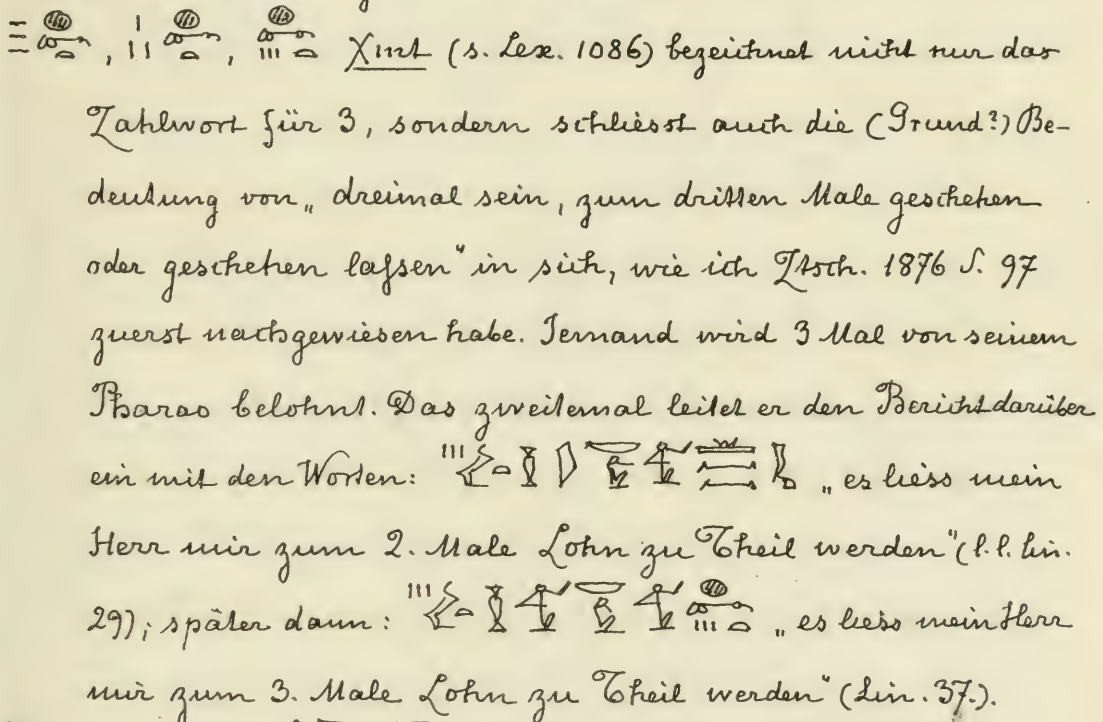 χmt (s. Lex. 1086) bezeichnet nicht nur das
Zahlwort für 3, sondern schliesst auch die (Grund?) Be-
deutung von „dreimal sein, zum dritten Male geschehen
oder geschehen lassen“ in sich, wie ich Ztsch. 1876 S. 97
zuerst nachgewiesen habe. Jemand wird 3 Mal von seinem
Pharao belohnt. Das zweitemal leitet er den Bericht darüber
ein mit den Worten: „es liess mein
Herr mir zum 2. Male Lohn zu Theil werden“ (l. l. lin.
29); später dann: „es liess mein Herr
mir zum 3. Male Lohn zu Theil werden“ (Lin. 37.).